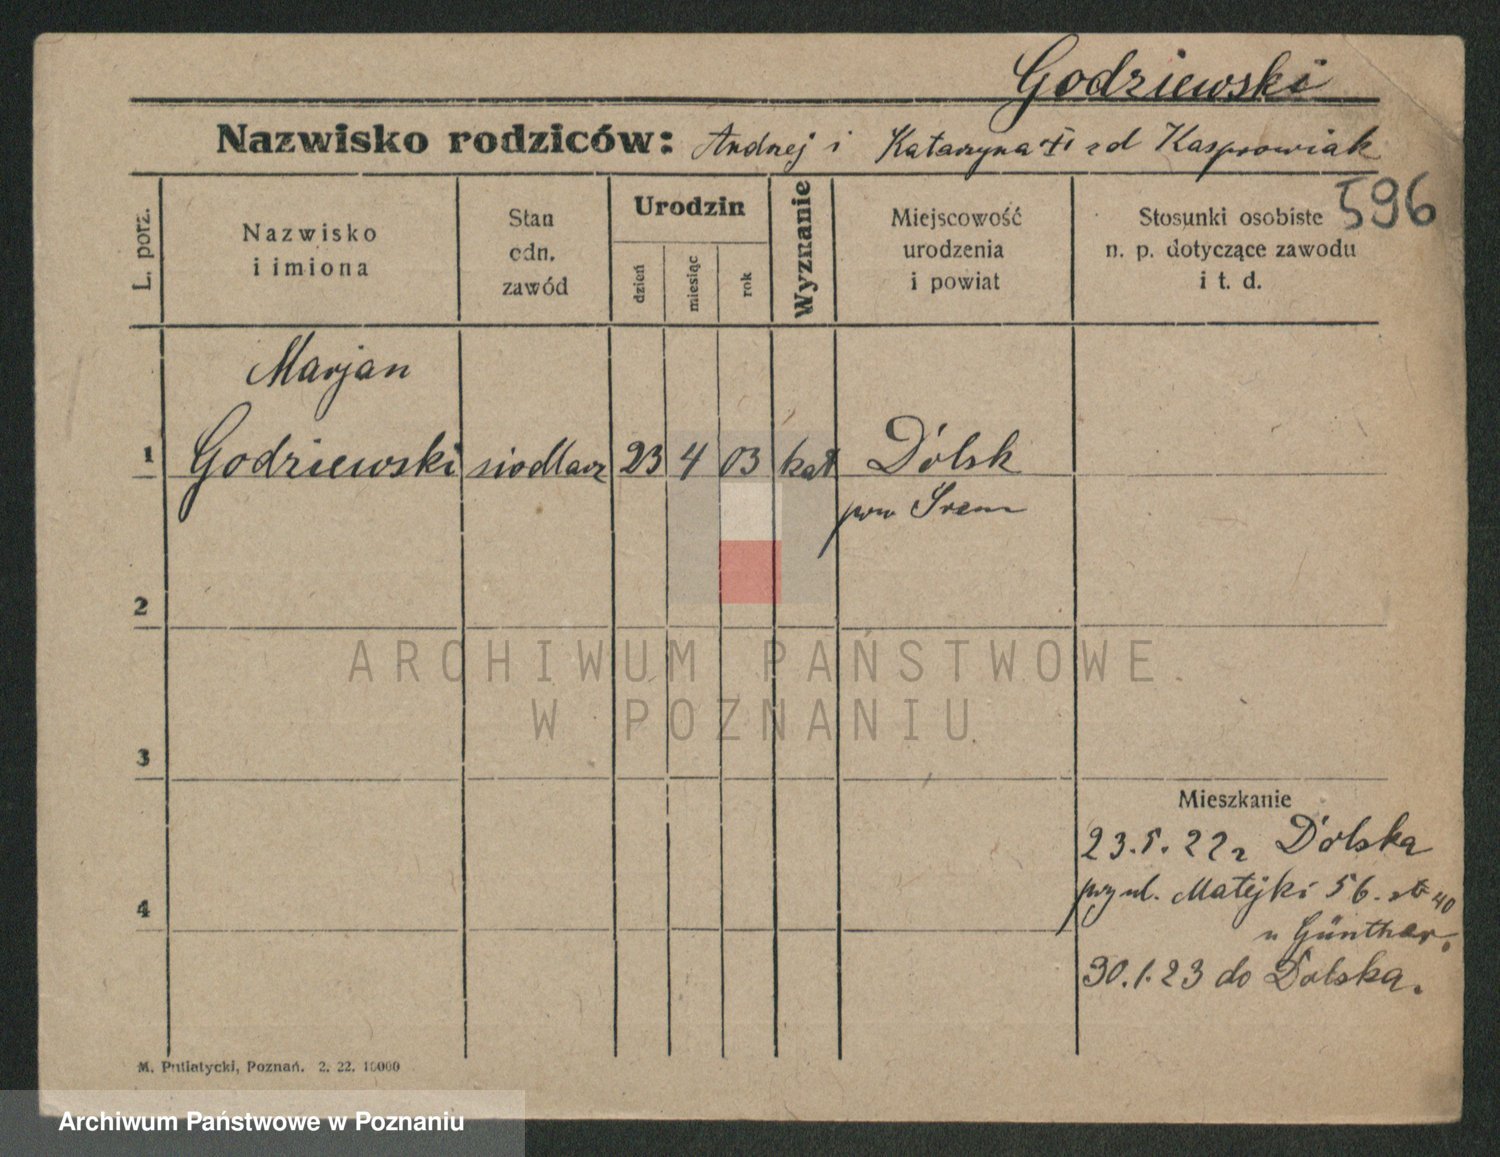 Godziewski
Nazwisko rodziców: Andrzej i Katarzyna zd Kasprowiak
596
L. porz.
Nazwisko
i imiona
Stan
cdn.
zawód
Urodzin
dzień
miesiąc
rok
Wyznanie
Miejscowość
urodzenia
i powiat
Stosunki osobiste
n. p. dotyczące zawodu
i t. d.
Marjan
1 Godziewski siodlarz 23 4 03 kat Dolsk
pow Śrem
2
ARCHIWUM PAŃSTWOWE
W POZNANIU
3
Mieszkanie
23.5.22 z Dolska
przy ul. Matejki 56. 40
4
u Günther.
30.1.23 do Dolska.
M. Putiatycki, Poznań. 2. 22. 10000
Archiwum Państwowe w Poznaniu